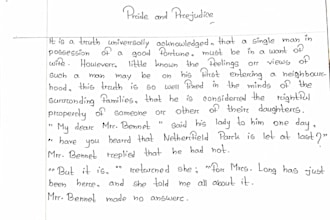 Pride and Prejudice
It is a truth universally acknowledged, that a single man in
possession of a good fortune, must be in a want of
wife. However, little known the feelings or views of
such a man may be on his first entering a neighbour-
hood, this truth is so well fixed in the minds of the
surronding families, that he is considered the rightful
property of someone or other of their daughters.
"My dear Mr. Bennet" said his lady to him one day,
"have you heard that Netherfield Park is let at last?"
Mr. Bennet replied that he had not.
"But it is," returned she; "for Mrs. Long has just
been here, and she told me all about it.
Mr. Bennet made no answer.